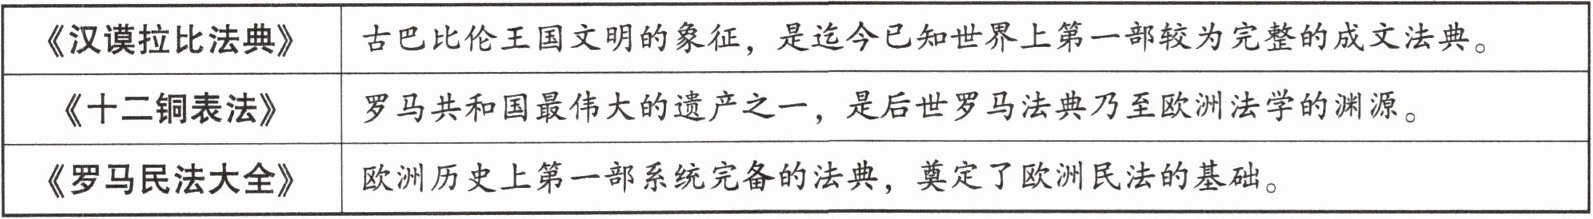 《汉谟拉比法典》 古巴比伦王国文明的象征，是迄今已知世界上第一部较为完整的成文法典。
《十二铜表法》 罗马共和国最伟大的遗产之一，是后世罗马法典乃至欧洲法学的渊源。
《罗马民法大全》 欧洲历史上第一部系统完备的法典，奠定了欧洲民法的基础。